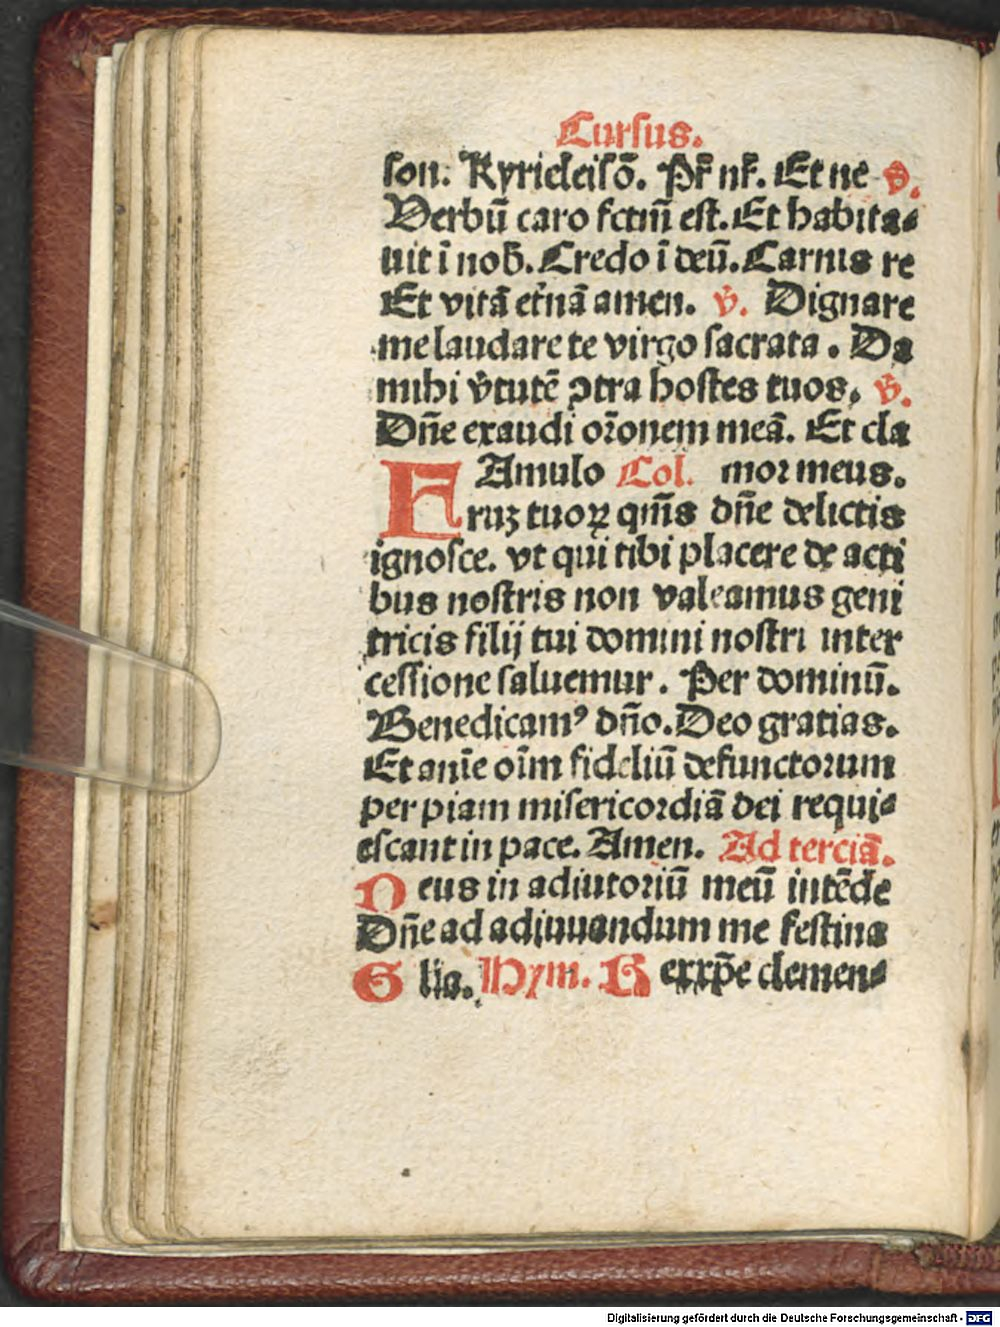 Cursus.
son. Kyrieleisō. Pr̄ nr̄. Et ne v̄.
Verbū caro fctm̄ est. Et habita⸗
uit ī nob̄. Credo ī deū. Carnis re
Et vitā et̄nā amen. v̄. Dignare
me laudare te virgo sacrata. Da
mihi v̄tutē ↄtra hostes tuos. v̄.
Dn̄e exaudi orōnem meā. Et cla
FAmulo Col. mor meus.
ruꝫ tuoꝝ qm̄s dn̄e delictis
ignosce. vt qui tibi placere de acti
bus nostris non valeamus geni
tricis filij tui domini nostri inter
cessione saluemur. Per dominū.
Benedicamꝰ dn̄o. Deo gratias.
Et anīe oīm fideliū defunctorum
per piam misericordiā dei requi⸗
escant in pace. Amen. Ad terciā.
Deus in adiutoriū meū intēde
Dn̄e ad adiuuandum me festina
Glia. Hym. Rex xp̄e clemen⸗
Digitalisierung gefördert durch die Deutsche Forschungsgemeinschaft - DFG